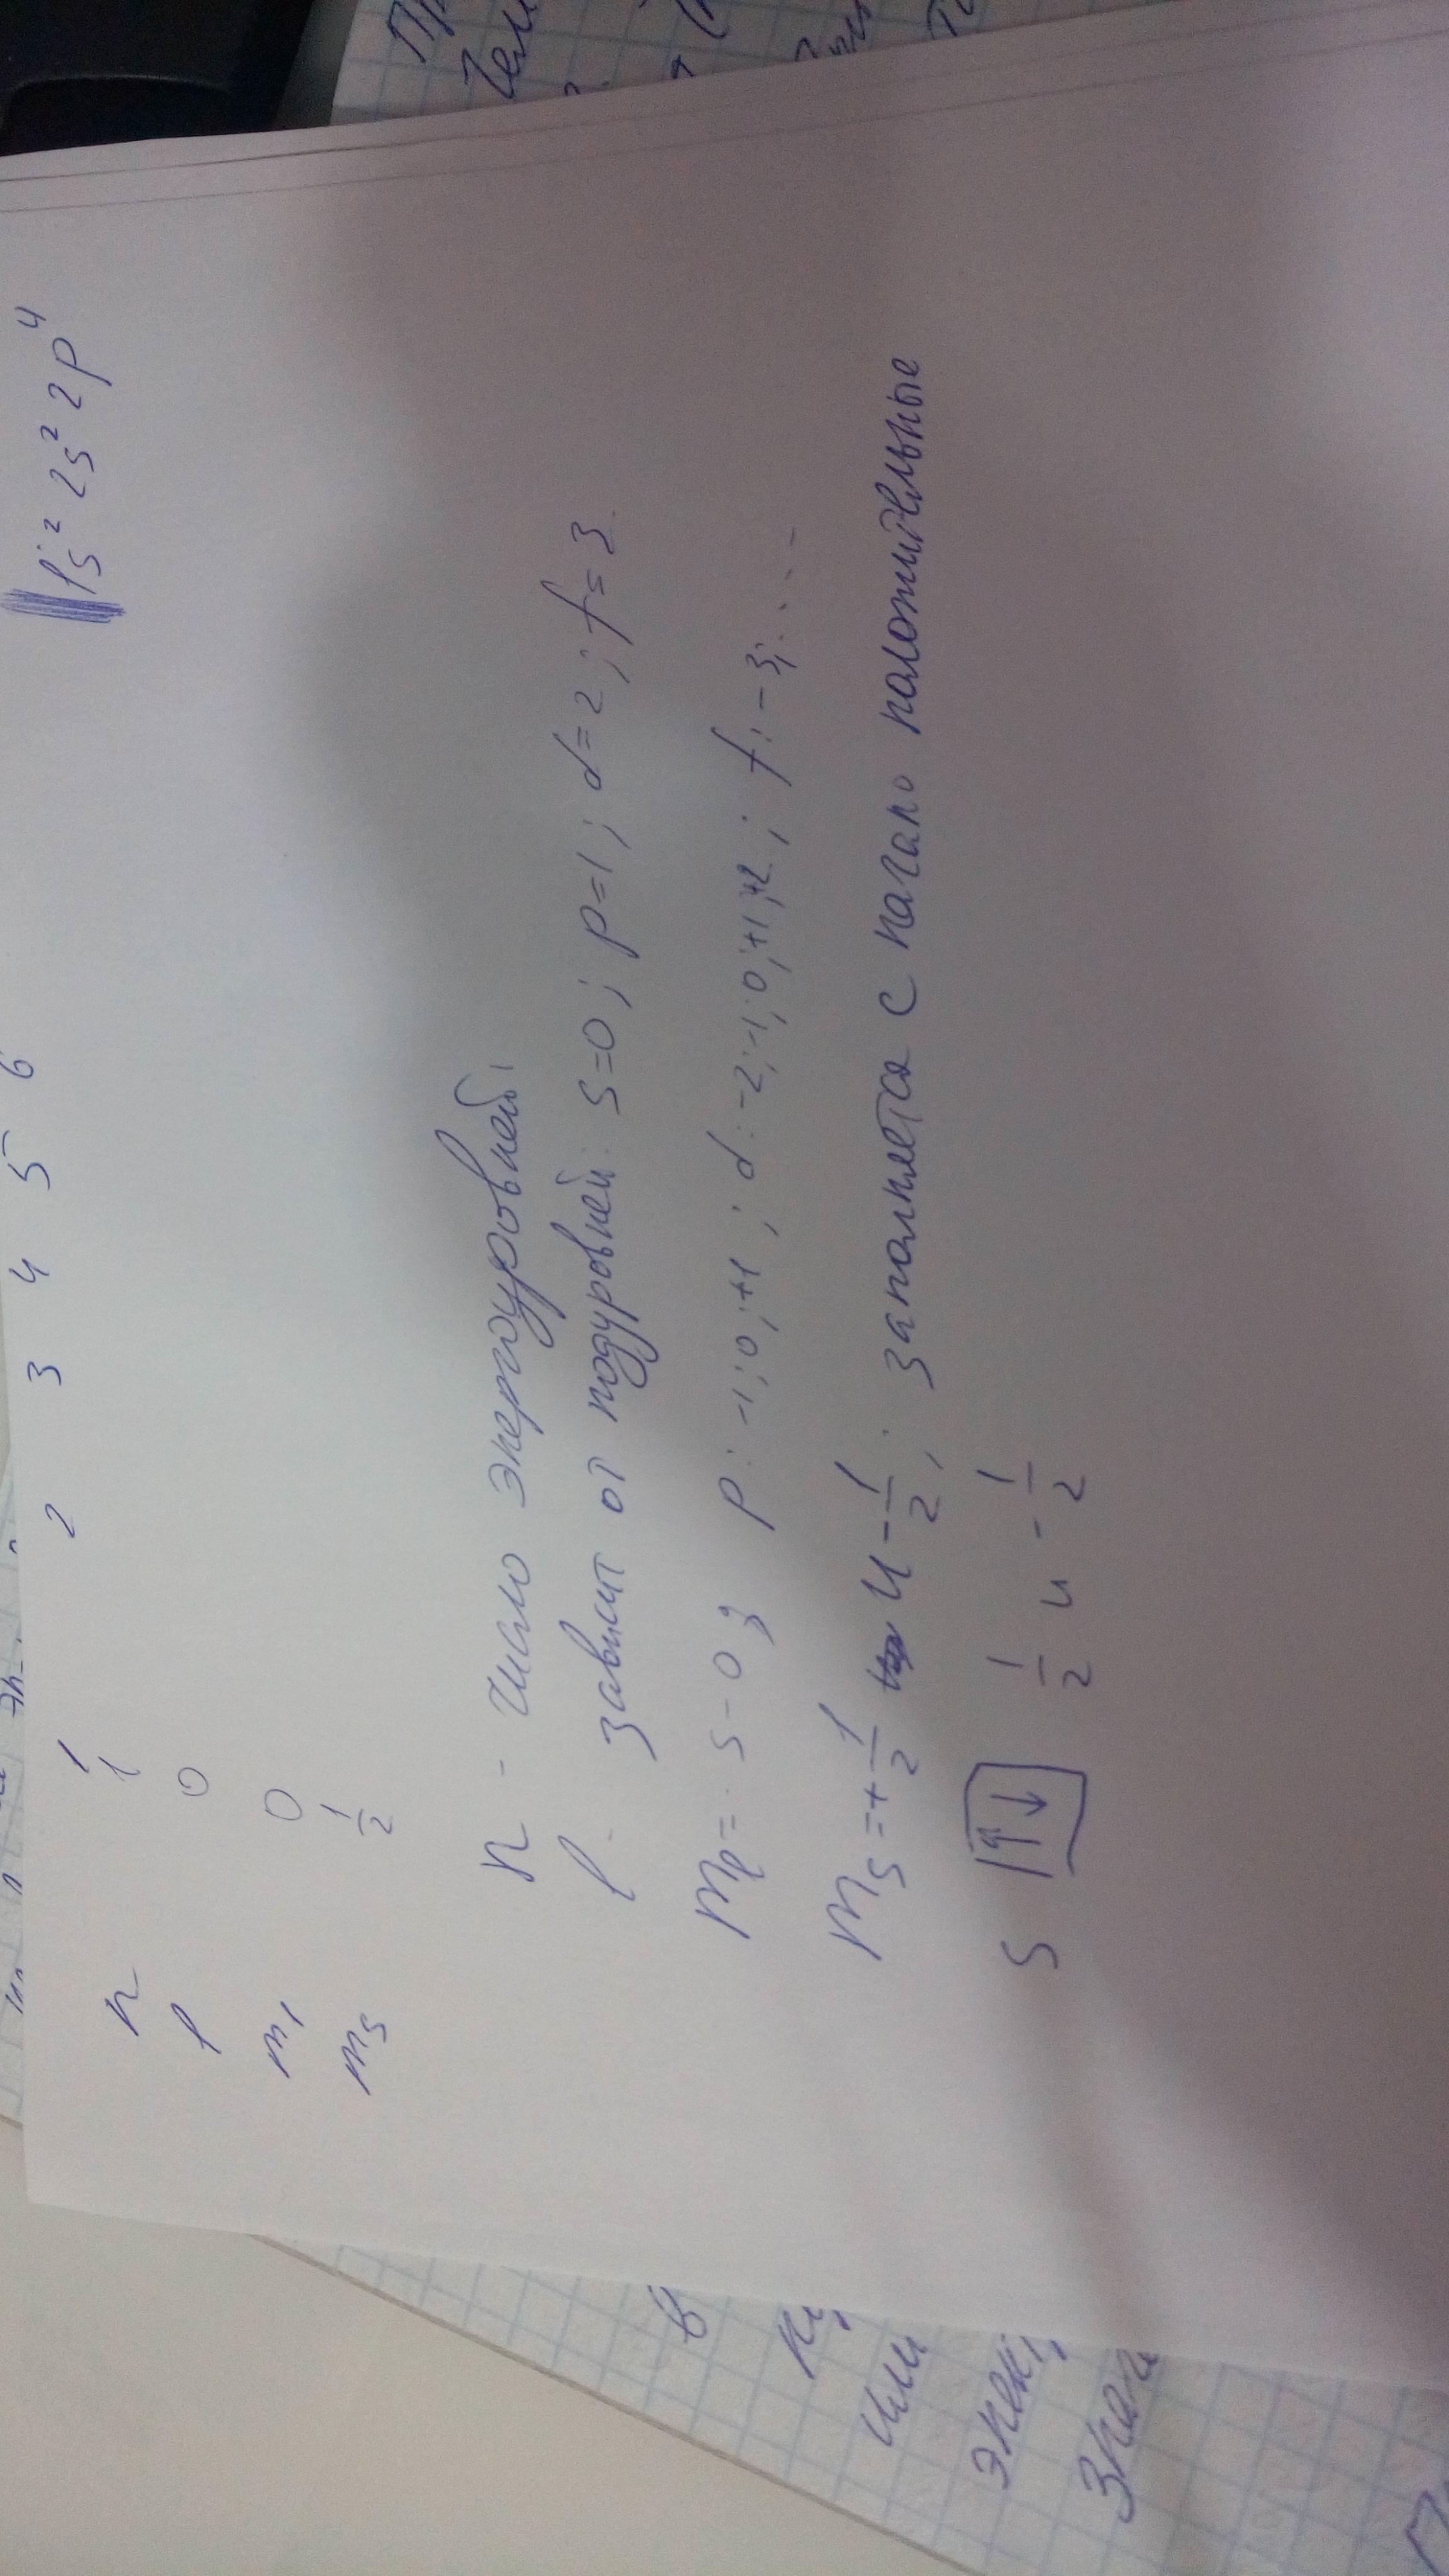 1s² 2s² 2p⁴
1 2 3 4 5 6
n 1
l 0
m₁ 0
mₛ 1/2
n - число энергоуровней;
l - зависит от подуровней: s=0; p=1; d=2; f=3.
mₗ= s-0; p: -1; 0; +1; d: -2; -1; 0; +1; +2; f: -3; ...
mₛ=+1/2 и -1/2; заполняется с начало положительные
s ↑↓ 1/2 и -1/2
в
или